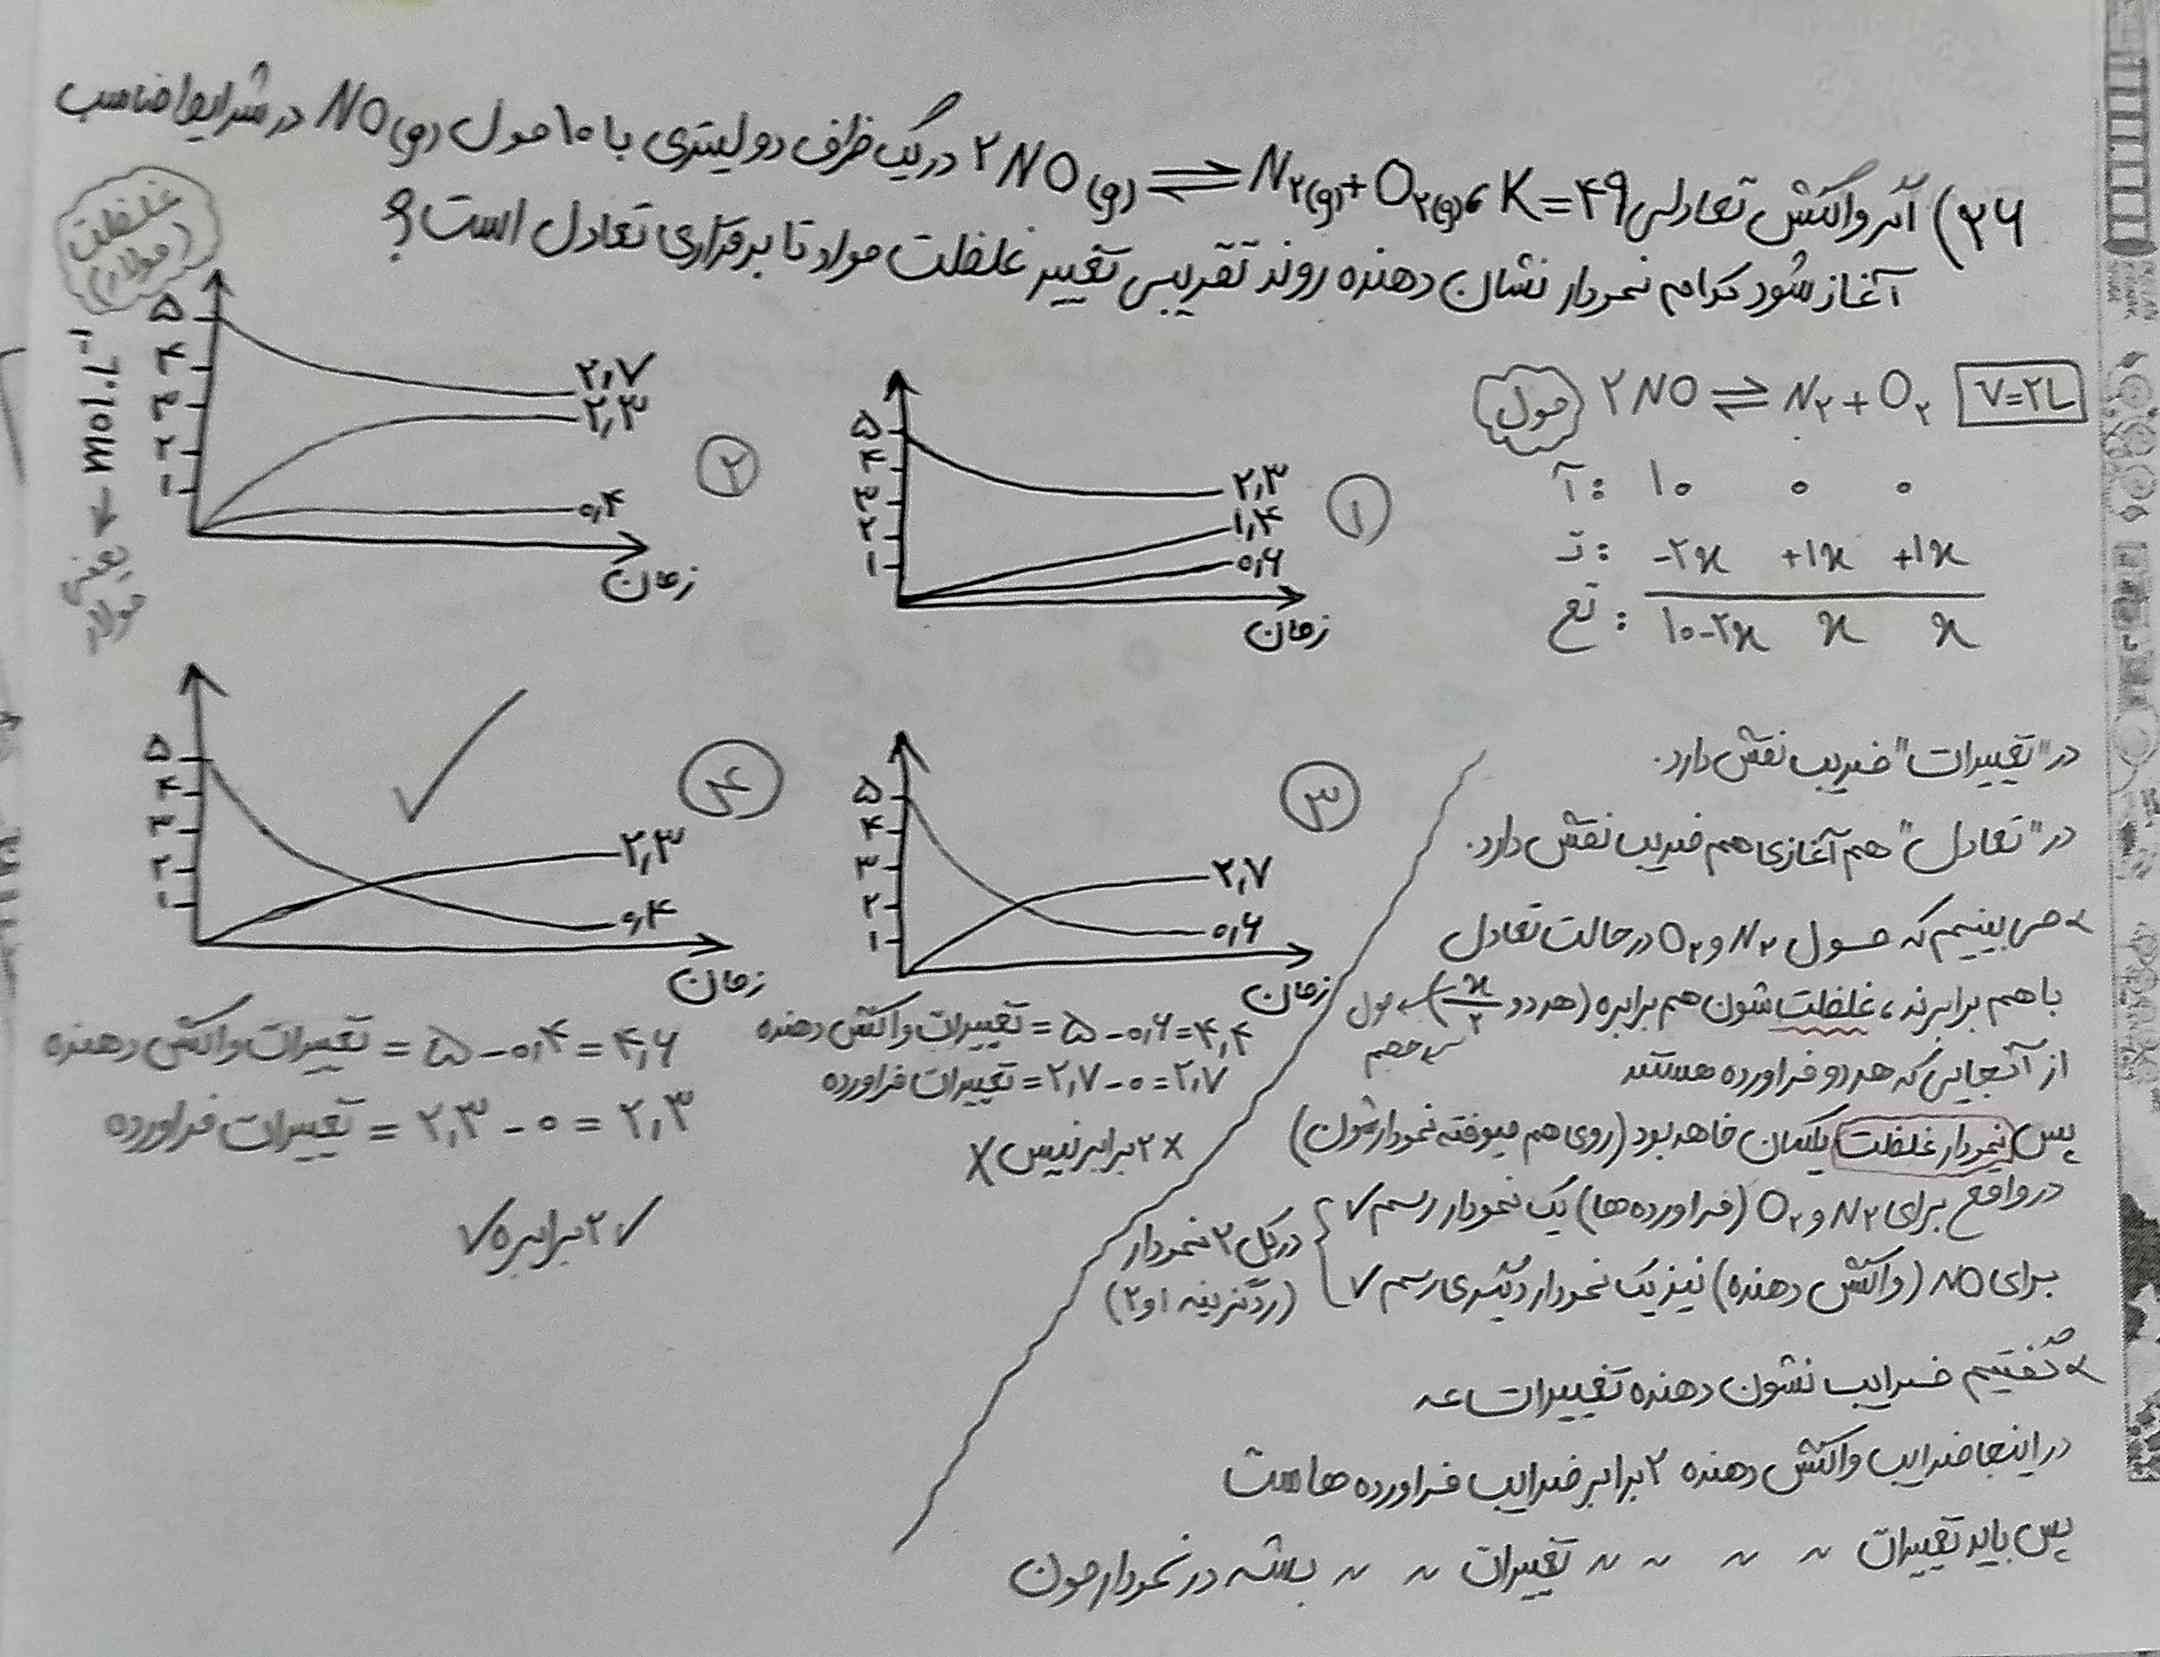 ۲۶) اگر واکنش تعادلی ۲NO(g) ⇌ N۲(g) + O۲(g) ، K=۴۹ در یک ظرف دو لیتری با ۱۰ مول NO(g) در شرایط مناسب
آغاز شود کدام نمودار نشان دهنده روند تقریبی تغییر غلظت مواد تا برقراری تعادل است؟
مول
۲NO ⇌ N۲ + O۲
V=۲L
آ: ۱۰ ۰ ۰
ت: -۲x +۱x +۱x
تع: ۱۰-۲x x x
۱
۵
۴
۳
۲
۱
۲,۳
۱,۴
۰,۶
زمان
۲
غلظت
(مولار)
mol.L⁻¹ ← یعنی مولار
۵
۴
۳
۲
۱
۲,۷
۲,۳
۰,۴
زمان
۳
۵
۴
۳
۲
۱
۲,۷
۰,۶
زمان
تغییرات واکنش دهنده = ۵-۰,۶=۴,۴
تغییرات فراورده = ۲,۷-۰=۲,۷
× ۲ برابر نیس ×
۴
✓
۵
۴
۳
۲
۱
۲,۳
۰,۴
زمان
تغییرات واکنش دهنده = ۵-۰,۴=۴,۶
تغییرات فراورده = ۲,۳-۰=۲,۳
✓ ۲ برابره ✓
در "تغییرات" ضریب نقش دارد.
در "تعادل" هم آغازی هم ضریب نقش دارد.
می بینیم که مول N۲ و O۲ در حالت تعادل
با هم برابرند، غلظت شون هم برابره (هر دو x/۲) ← مول
← حجم
از آنجایی که هر دو فراورده هستند
پس نمودار غلظت یکسان خاهد بود (روی هم میوفته نمودارشون)
در واقع برای N۲ و O۲ (فراورده ها) یک نمودار رسم ✓
برای NO (واکنش دهنده) نیز یک نمودار دیگری رسم ✓
در کل ۲ نمودار
(رد گزینه ۱ و ۲)
گفتیم ضرایب نشون دهنده تغییرات عه
در اینجا ضرایب واکنش دهنده ۲ برابر ضرایب فراورده هاست
پس باید تغییرات 〃 〃 〃 〃 تغییرات 〃 〃 باشه در نمودارمون